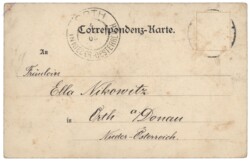 ORTH
Correspondenz-Karte.
An
Fräulein
Ella Nikowitz
in
Orth a/Donau
Nieder-Österreich